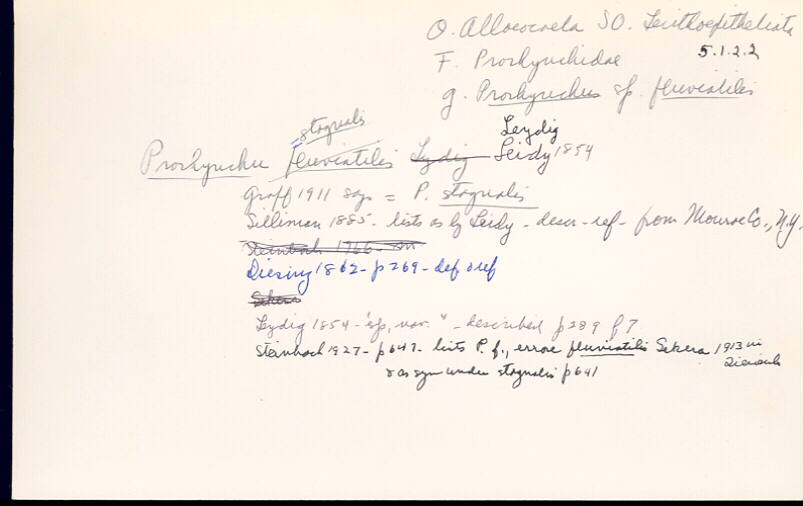 O. Alloeocoela SO. Lecithoepitheliata
F. Prorhynchidae 5.1.2.2
g. Prorhynchus sp. fluviatilis
= stagnalis Leydig
Prorhynchus fluviatilis Leydig Leidy 1854
Graff 1911 says = P. stagnalis
Silliman 1885 - lists as by Leidy - descr - ref - from Monroe Co., N.Y.
Steinbock 1966 - syn
Diesing 1862 - p 269 - def & ref
Sekera
Leydig 1854 - "sp. nov." - described p 289 f 7
Steinbock 1927 - p 647 - lists P. f., errore fluviatilis Sekera 1913 in
& as syn under stagnalis p 641